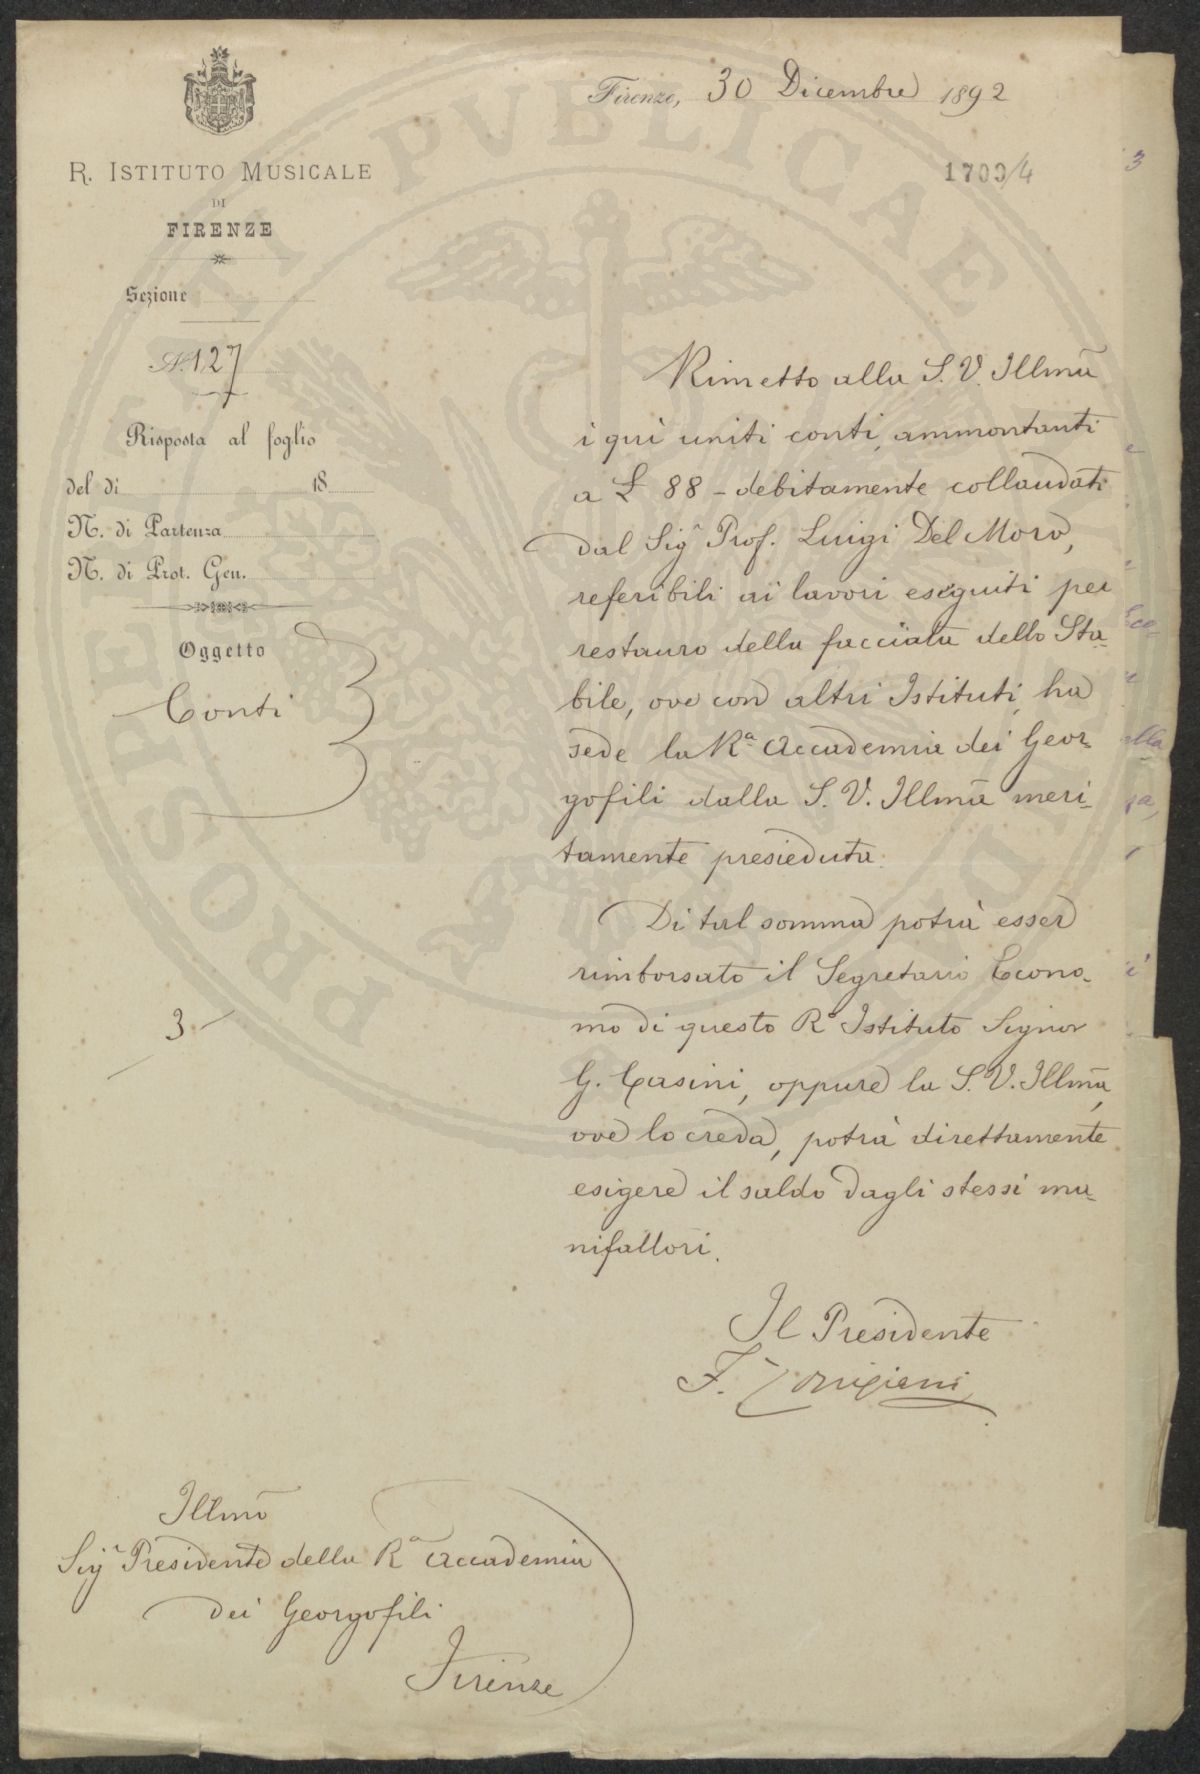 R. ISTITUTO MUSICALE
DI
FIRENZE
Sezione
N. 127
Risposta al foglio
del di 18
N. di Partenza
N. di Prot. Gen.
Oggetto
Conti
3
Firenze, 30 Dicembre 1892
1700/4
Rimetto alla S. V. Illma
i qui uniti conti, ammontanti
a £ 88 - debitamente collaudati
dal Sigr Prof. Luigi Del Moro,
referibili ai lavori eseguiti per
restauro della facciata dello Sta-
bile, ove con altri Istituti, ha
sede la Ra Accademia dei Geor-
gofili dalla S. V. Illma meri-
tamente presieduta.
Di tal somma potrà esser
rimborsato il Segretario Econo-
mo di questo Ro Istituto Signor
G. Casini, oppure la S. V. Illma,
ove lo creda, potrà direttamente
esigere il saldo dagli stessi ma-
nifattori.
Il Presidente
F. Torrigiani
Illmo
Sigr Presidente della Ra Accademia
dei Georgofili
Firenze
PROSPERITATI PVBLICAE